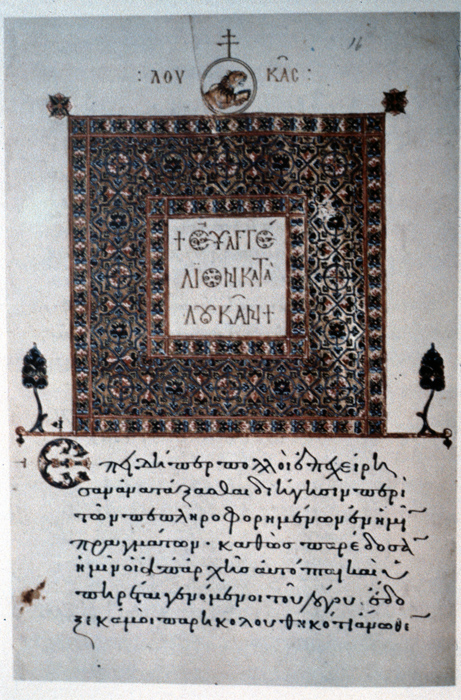 16
: ΛΟΥ ΚΑ͂C :
+ ΕΥΑΓΓΕ
ΛΙΟΝ ΚΑΤᾺ
ΛΟΥΚΑ͂Ν +
Ἐπειδήπερ πολλοὶ ἐπεχείρη
σαν ἀνατάξασθαι διήγησιν περὶ
τῶν πεπληροφορημένων ἐν ἡμῖ
πραγμάτων· καθὼς παρέδοσα
ἡμῖν οἱ ἀπαρχῆς αὐτόπται καὶ ὑ
πηρέται γενόμενοι τοῦ λόγου· ἔδο
ξε κἀμοὶ παρηκολουθηκότι ἄνωθε